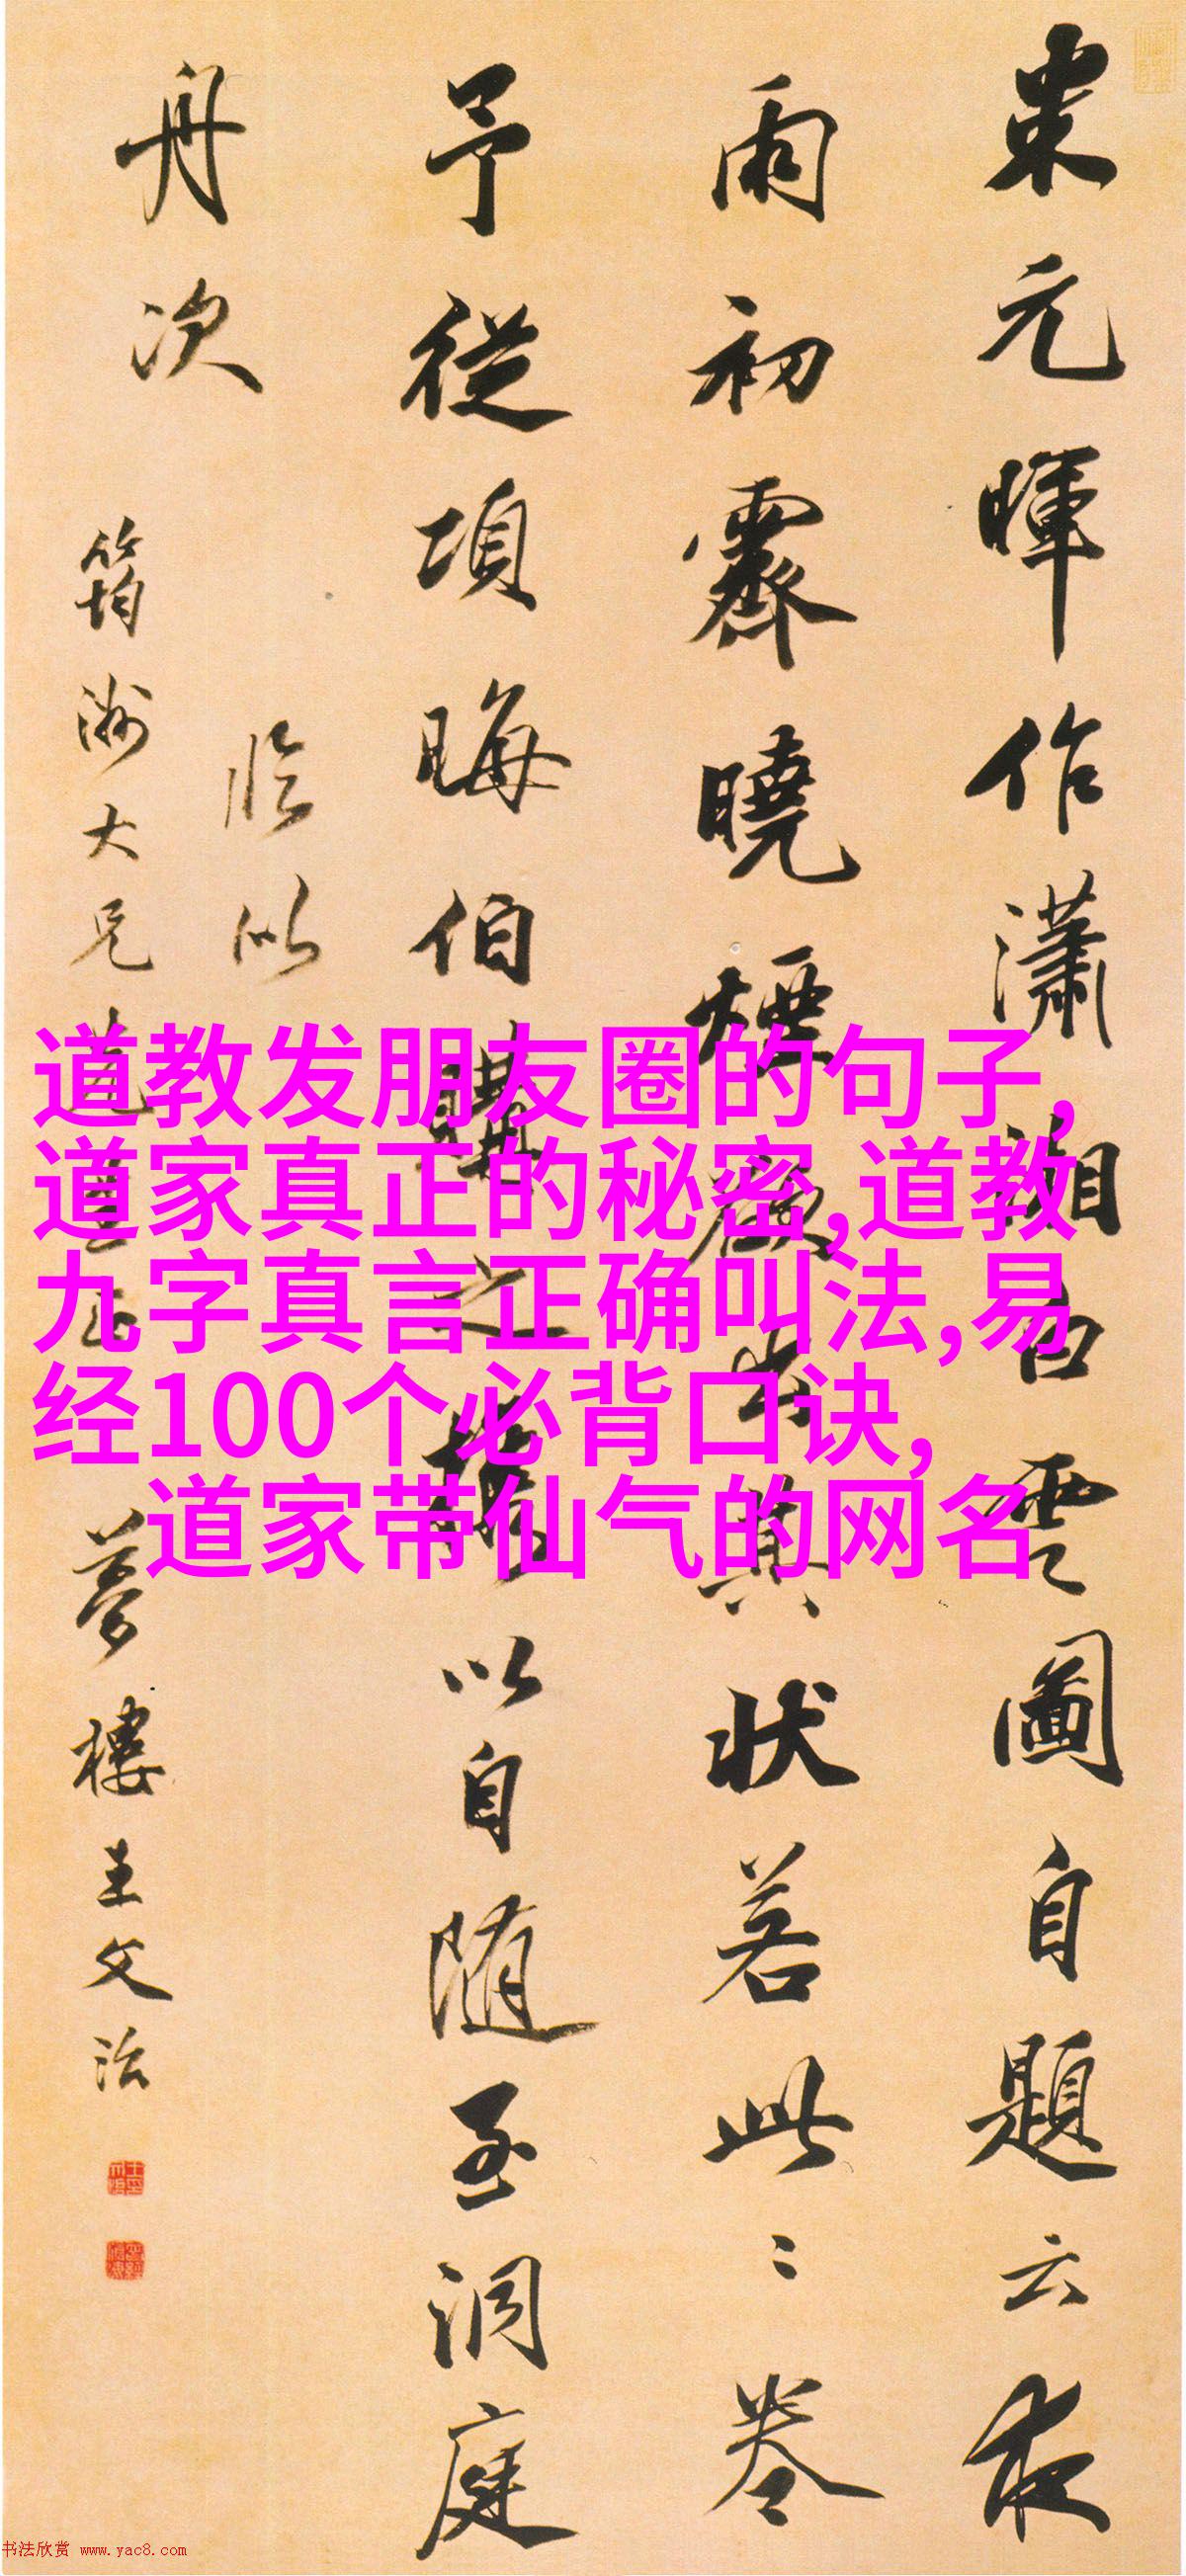 米元暉作瀟湘白雲圖自題云夜
雨初霽曉煙欲出其狀若此〻卷
予從項晦伯購之攜以自随至洞庭
舟次
臨以
筠洲大兄
夢樓王文治
道教发朋友圈的句子,
道家真正的秘密,道教
九字真言正确叫法,易
经100个必背口诀,
道家带仙气的网名
书法欣赏 www.yac8.com